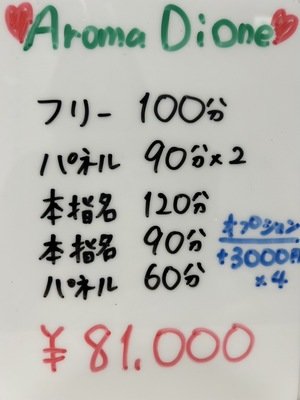 Aroma Dione
フリー 100分
パネル 90分×2
本指名 120分
本指名 90分
パネル 60分
オプション
+3000円
×4
¥81.000